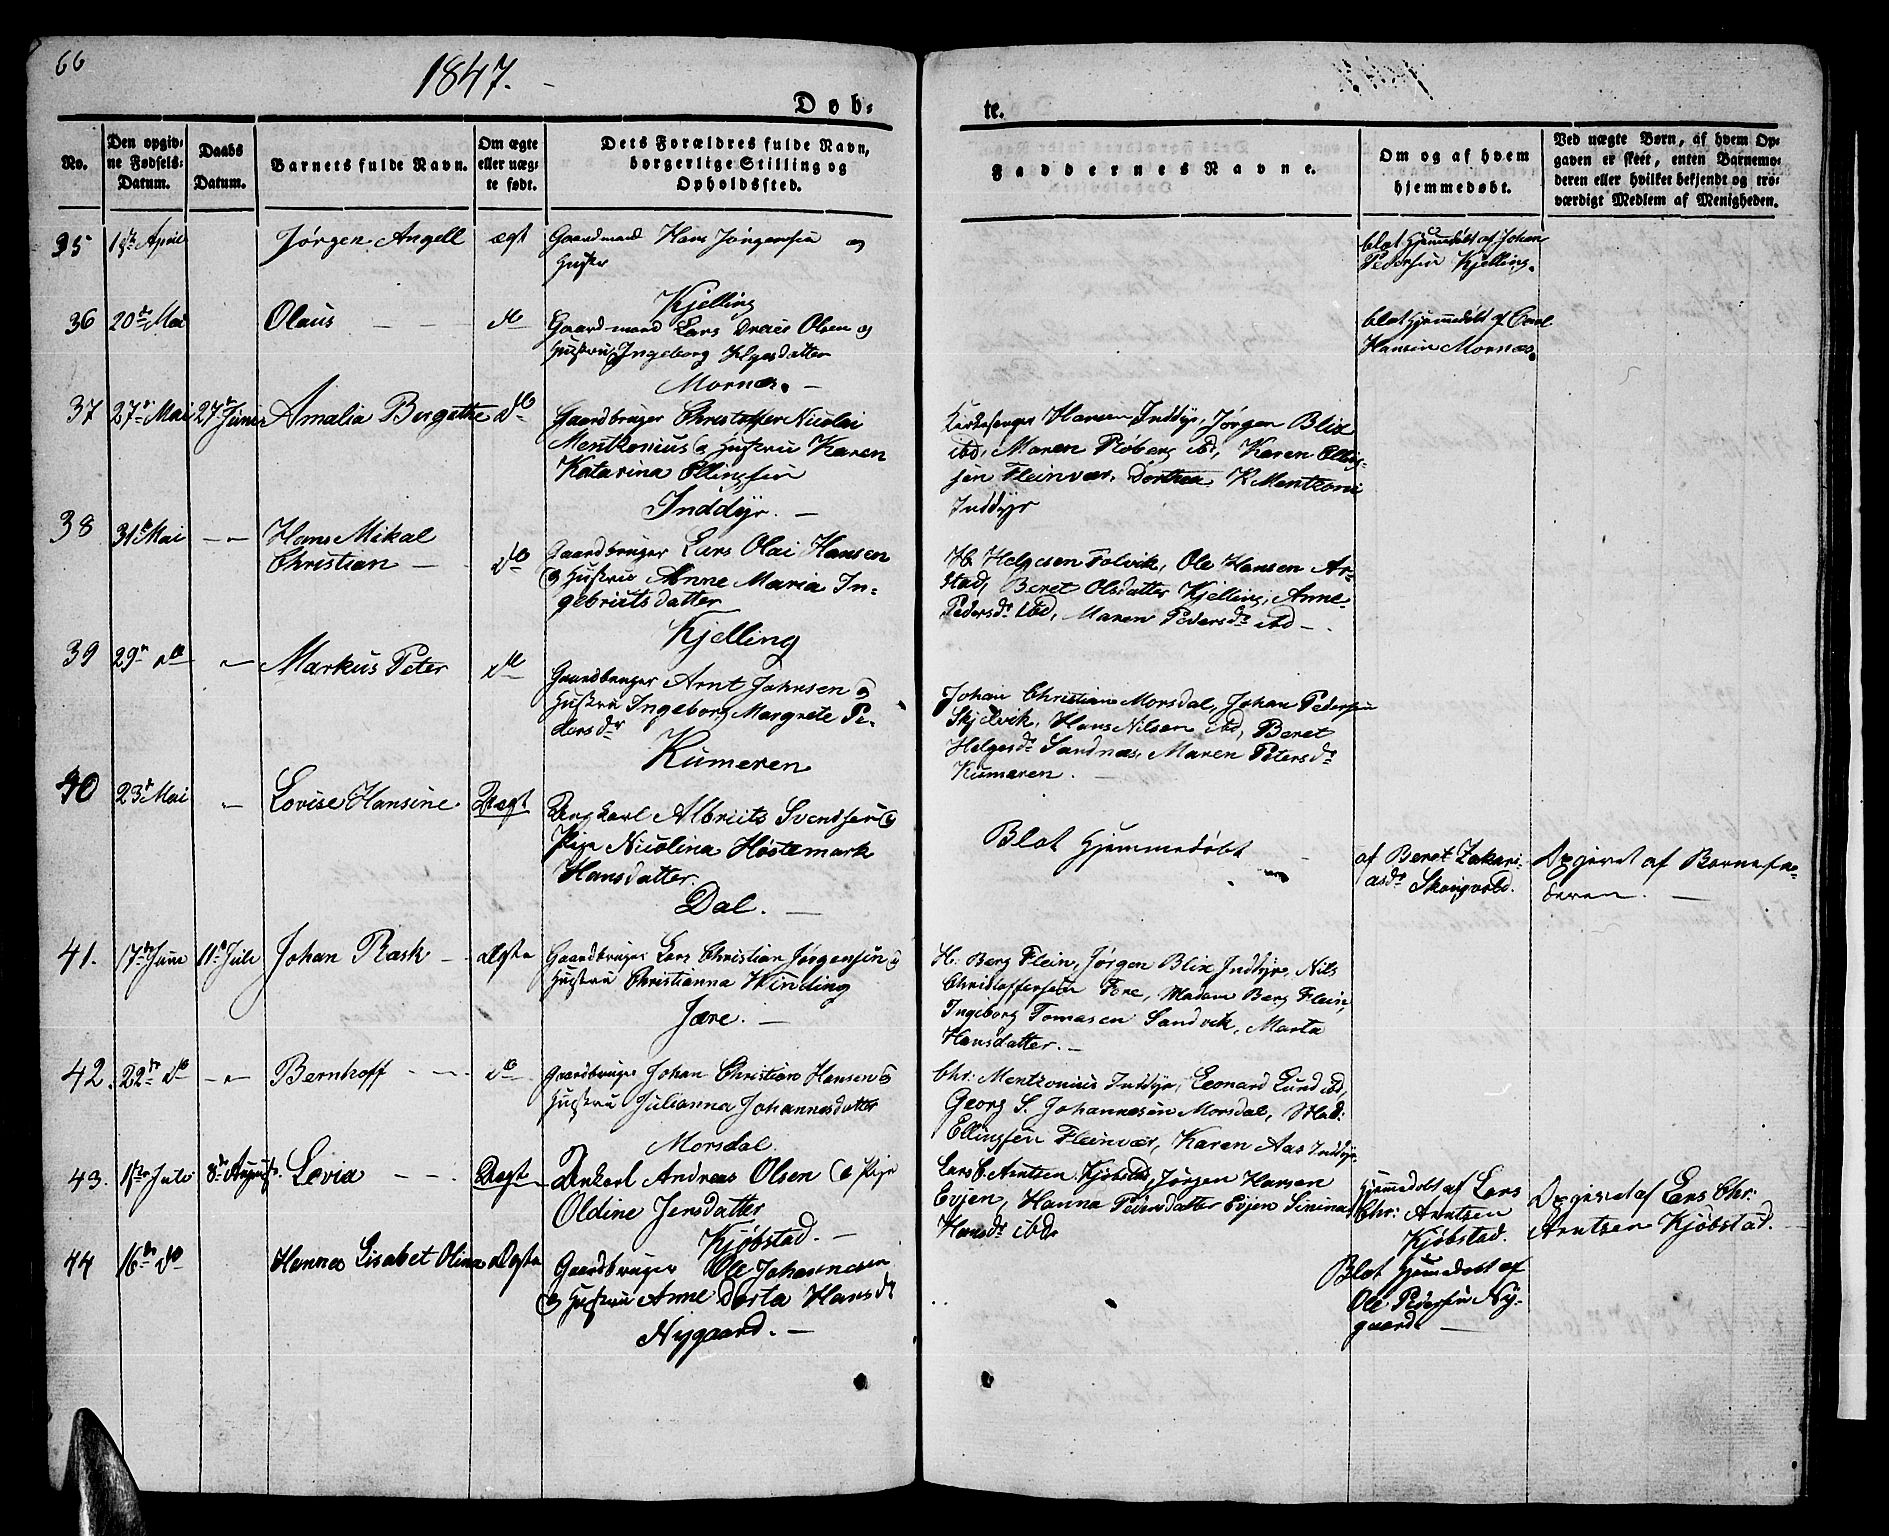 66
1847.
Døb-
te.
No.
Den opgiv-
ne Fødsels-
Datum.
Daabs
Datum.
Barnets fulde Navn.
Om ægte
eller uæg-
te født.
Dets Forældres fulde Navn,
borgerlige Stilling og
Opholdssted.
Faddernes Navne.
Om og af hvem
hjemmedøbt.
Ved uægte Børn, af hvem Op-
gaven er skeet, enten Barnemo-
deren eller hvilket bekjendt og tro-
værdigt Medlem af Menigheden.
35 April Jørgen Angell ægt Gaardmand Hans Jørgensen og
Hustru
Kjelling
blot hjemmedøbt af Johan
Pedersen Kjelling.
36 20de Mai Olaus do Gaardmand Lars Olsen og
Hustru Ingeborg
Mornæs.
blot hjemmedøbt af Carl
Hansen Mornæs.
37 27de Mai 27de Juni Amalia Bergethe do
Gaardbruger Christoffer Nicolai
Mentzonius og Hustru Karen
Katarina Ellingsen
Inddyr.
Kirkesanger Hansen Inddyr, Jørgen Blix
ibd, Maren Røberg ibd, Karen Elling-
sen Fleinvær, Dorthea K Mentzoni
Inddyr
38 31te Mai Hans Mikal
Christian do
Gaardbruger Lars Olai Hansen
og Hustru Anne Maria In-
gebrittsdatter
Kjelling
H. Helgesen Folvik, Ole Hansen Ar-
stad, Beret Olsdatter Kjelling, Anne
Pedersdr ibd, Maren Pedersdr ibd
39 29de do Markus Peter do
Gaardbruger Arnt Johnsen og
Hustru Ingeborg Margrete Pe-
dersdr
Kumeren
Johan Christian Morsdal, Johan Pedersen
Skjelvik, Hans Nilsen ibd, Beret
Helgesdr Sandnæs, Maren Petersdr
Kumaren.
40 23de Mai Lovise Hansine Uægt
Ungkarl Albriits Svendsen og
Pige Nicolina Høstemark
Hansdatter.
Dal.
Blot Hjemmedøbt
af Beret Zakari-
asdr
Opgivet af Barnefa-
deren.
41. 17de Juni 11te Juli Johan Rask Ægte
Gaardbruger Lars Christian Jørgensen og
Hustru Christianna Winding
Jære.
H. Berg Flein, Jørgen Blix Inddyr, Nils
Christoffersen Fore, Madam Berg Flein,
Ingeborg Tomasen Sandvik, Marta
Hansdatter.
42. 22de do Bernhoff do
Gaardbruger Johan Christian Hansen og
Hustru Julianna Johannesdatter
Morsdal
Chr: Mentzonius Inddyr, Leonard Lund ibd,
Georg S. Johannesen Morsdal, Mad:
Ellingsen Fleinvær, Karen Aas Inddyr.
43. Juli 8de August Lovia Uægt
Unkarl Andreas Olsen og Pige
Oldine Jensdatter
Kjøbstad.
Lars C. Arntsen Kjøbstad, Jørgen Hansen
Evjen, Hanna Pedersdatter Evjen
Hansdr ibd.
Hjemmedøbt af Lars
Chr: Arntsen
Kjøbstad.
Opgivet af Lars Chr:
Arntsen Kjøbstad.
44 16de do Hanna Lisabet Olina Ægte
Gaardbruger Ole Johannesen
og Hustru Anne Dorta Hansdr
Nygaard.
Blot hjemmedøbt af
Ole Pedersen Ny-
gaard.